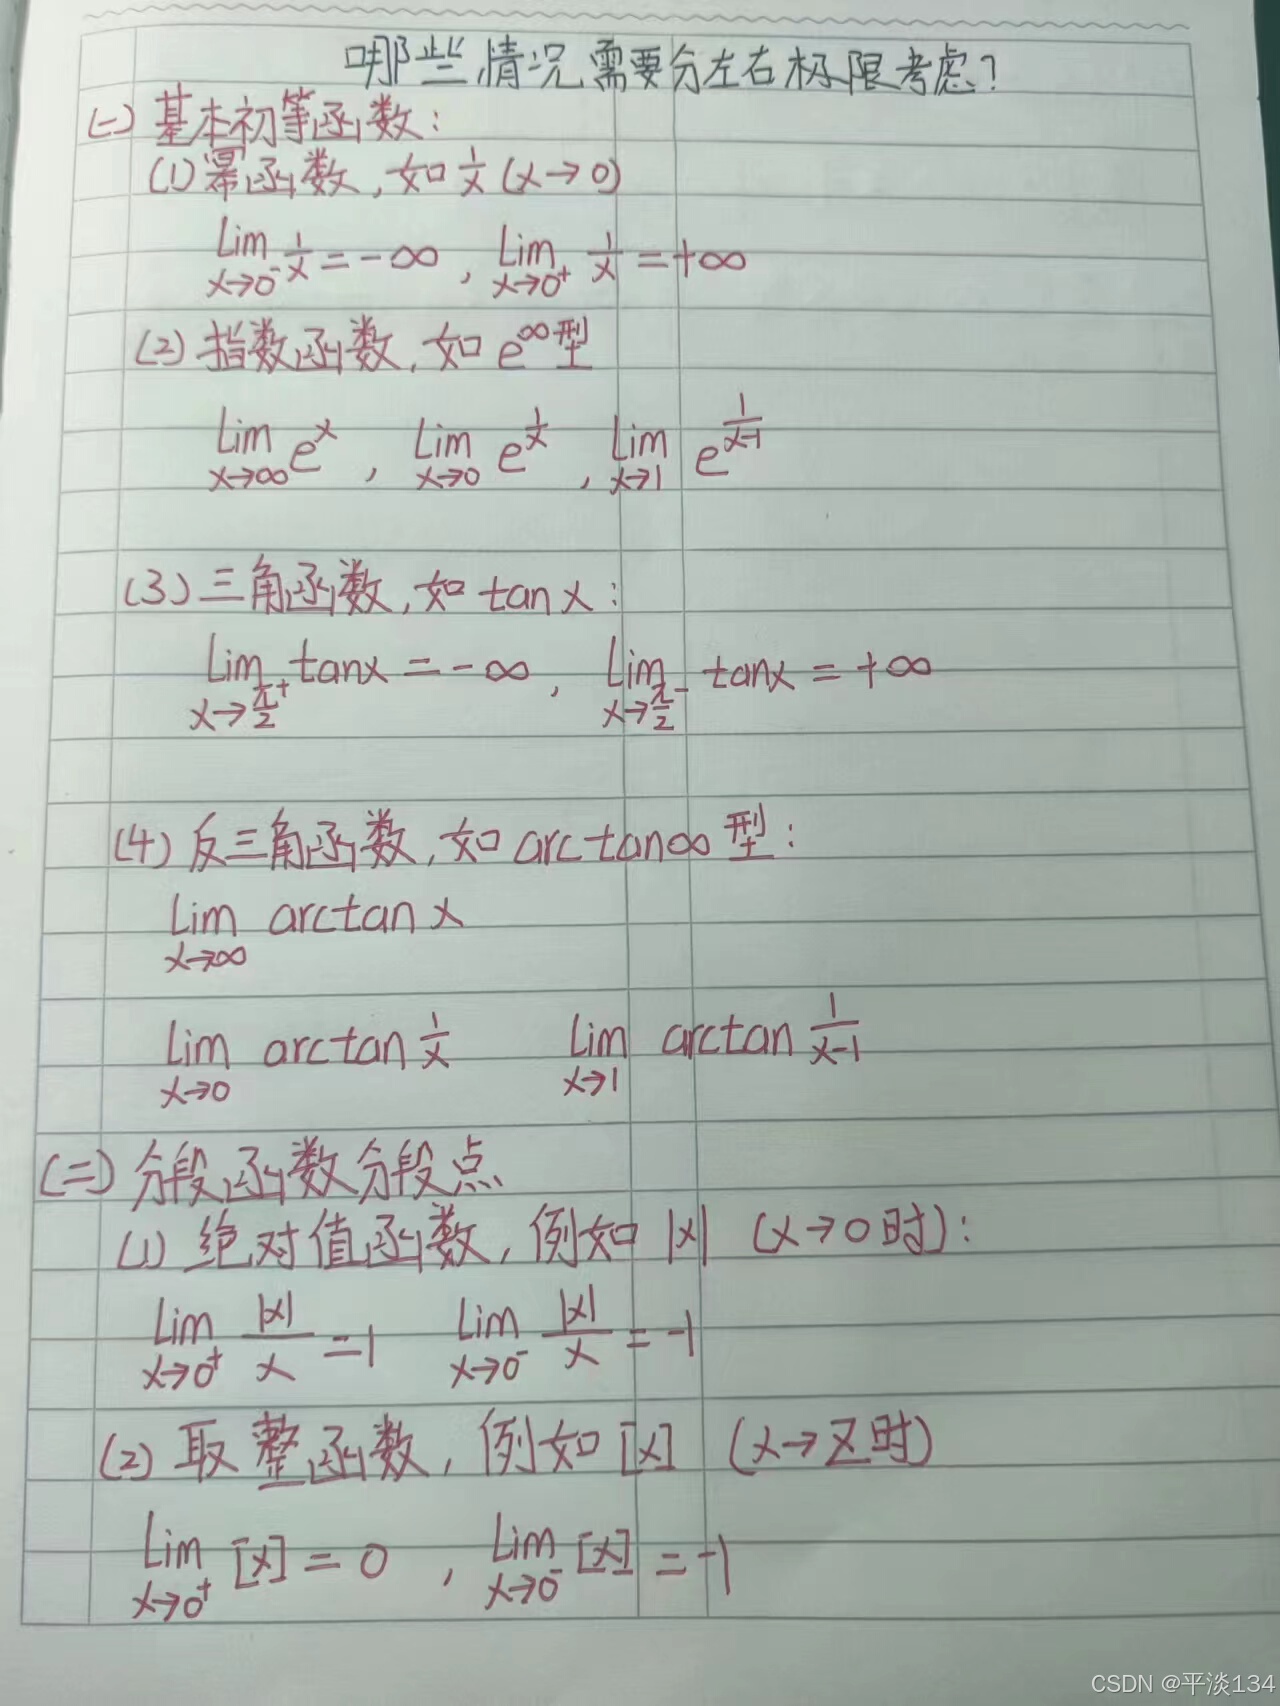 哪些情况需要分左右极限考虑?
(一) 基本初等函数:
(1) 幂函数,如 1/x (x→0)
lim x→0⁻ 1/x = -∞ , lim x→0⁺ 1/x = +∞
(2) 指数函数,如 e^∞型
lim x→∞ e^x , lim x→0 e^(1/x) , lim x→1 e^(1/(x-1))
(3) 三角函数,如 tanx:
lim x→π/2⁺ tanx = -∞ , lim x→π/2⁻ tanx = +∞
(4) 反三角函数,如 arctan∞ 型:
lim x→∞ arctan x
lim x→0 arctan 1/x lim x→1 arctan 1/(x-1)
(二) 分段函数分段点
(1) 绝对值函数,例如 |x| (x→0时):
lim x→0⁺ |x|/x = 1 lim x→0⁻ |x|/x = -1
(2) 取整函数,例如 [x] (x→Z时)
lim x→0⁺ [x] = 0 , lim x→0⁻ [x] = -1
CSDN @平淡134